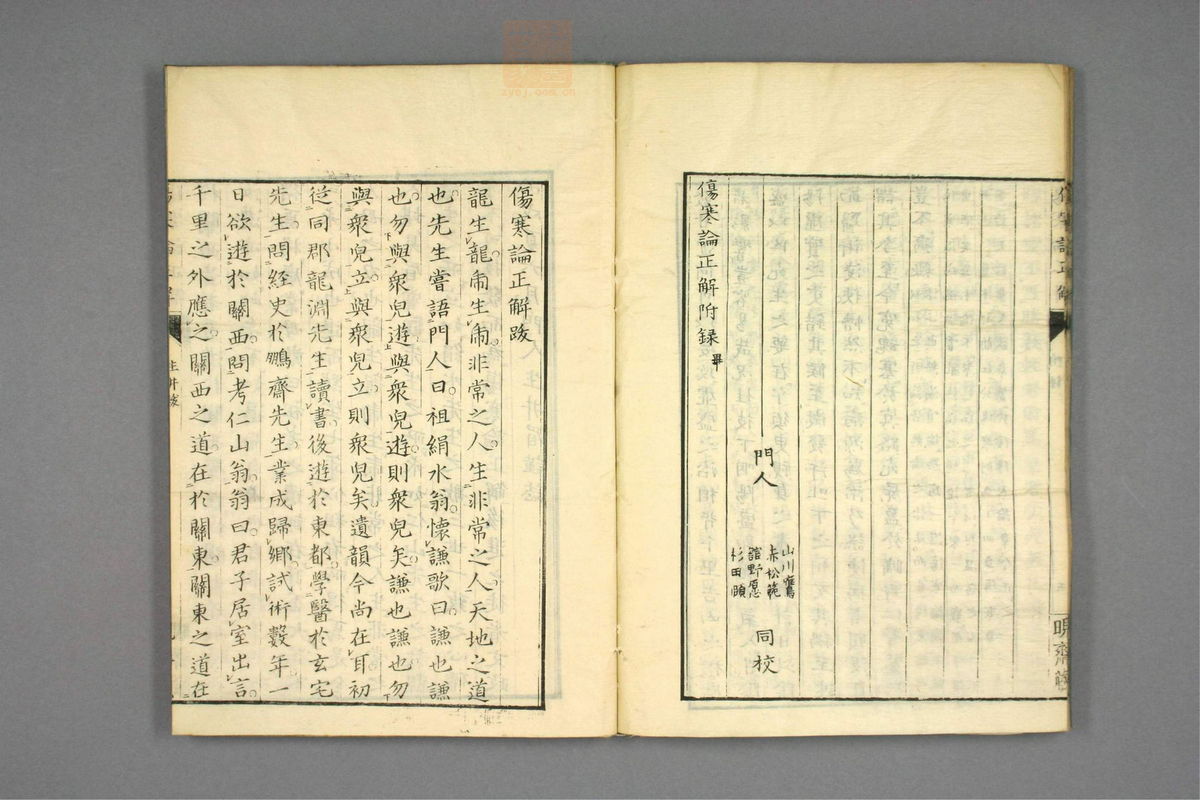 傷寒論正解附録畢
門人
山川鷹
赤松範
舘野愿
杉田頤
同校
傷寒論正解跋
龍生龍虎生虎非常之人生非常之人天地之道
也先生嘗語門人曰祖絹水翁懷謙歌曰謙也謙
也勿與衆兒遊與衆兒遊則衆兒矣謙也謙也勿
與衆兒立與衆兒立則衆兒矣遺韻今尚在耳初
從同郡龍淵先生讀書後遊於東都學醫於玄宅
先生問經史於鵬齋先生業成歸鄉試術數年一
日欲遊於關西問考仁山翁翁曰君子居室出言
千里之外應之關西之道在於關東關東之道在
zyoj.com.cn